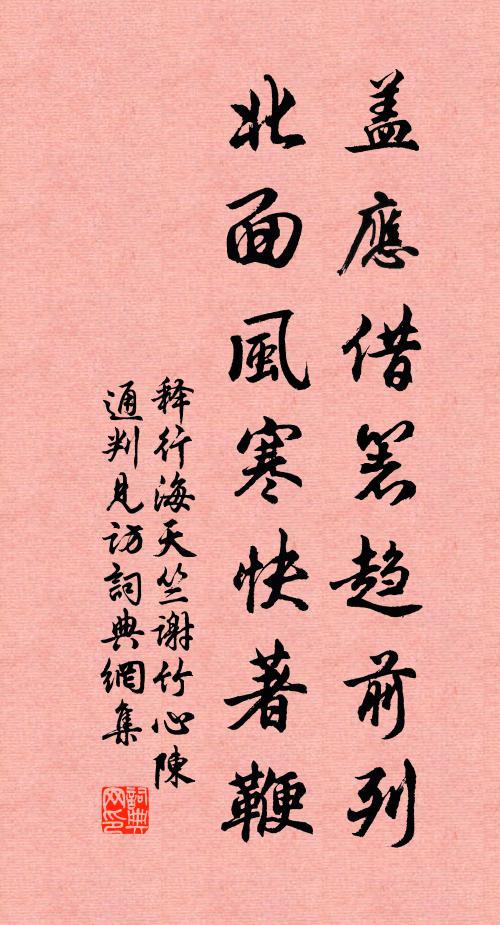 盖應借箸趋前列
北面風寒快著鞭
释行海天竺谢竹心陳
通判見访詞典網集
詞典
网印